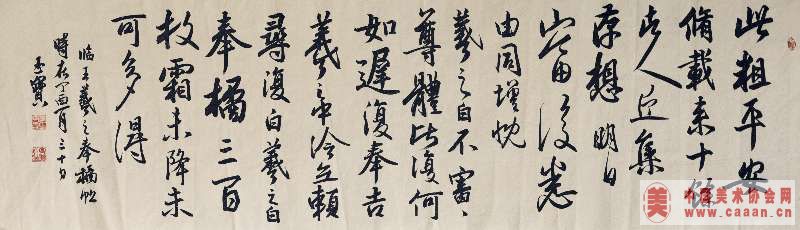 此粗平安
脩載来十餘
諸人近集
存想明日
當復悉
由同增慨
羲之白不審〻
尊體比復何
如遲復奉告
羲之中冷無賴
尋復白羲之白
奉橘三百
枚霜未降未
可多得
临王羲之奉橘帖
時在丁酉月三十日
美
美术协会网
www.caaan.cn